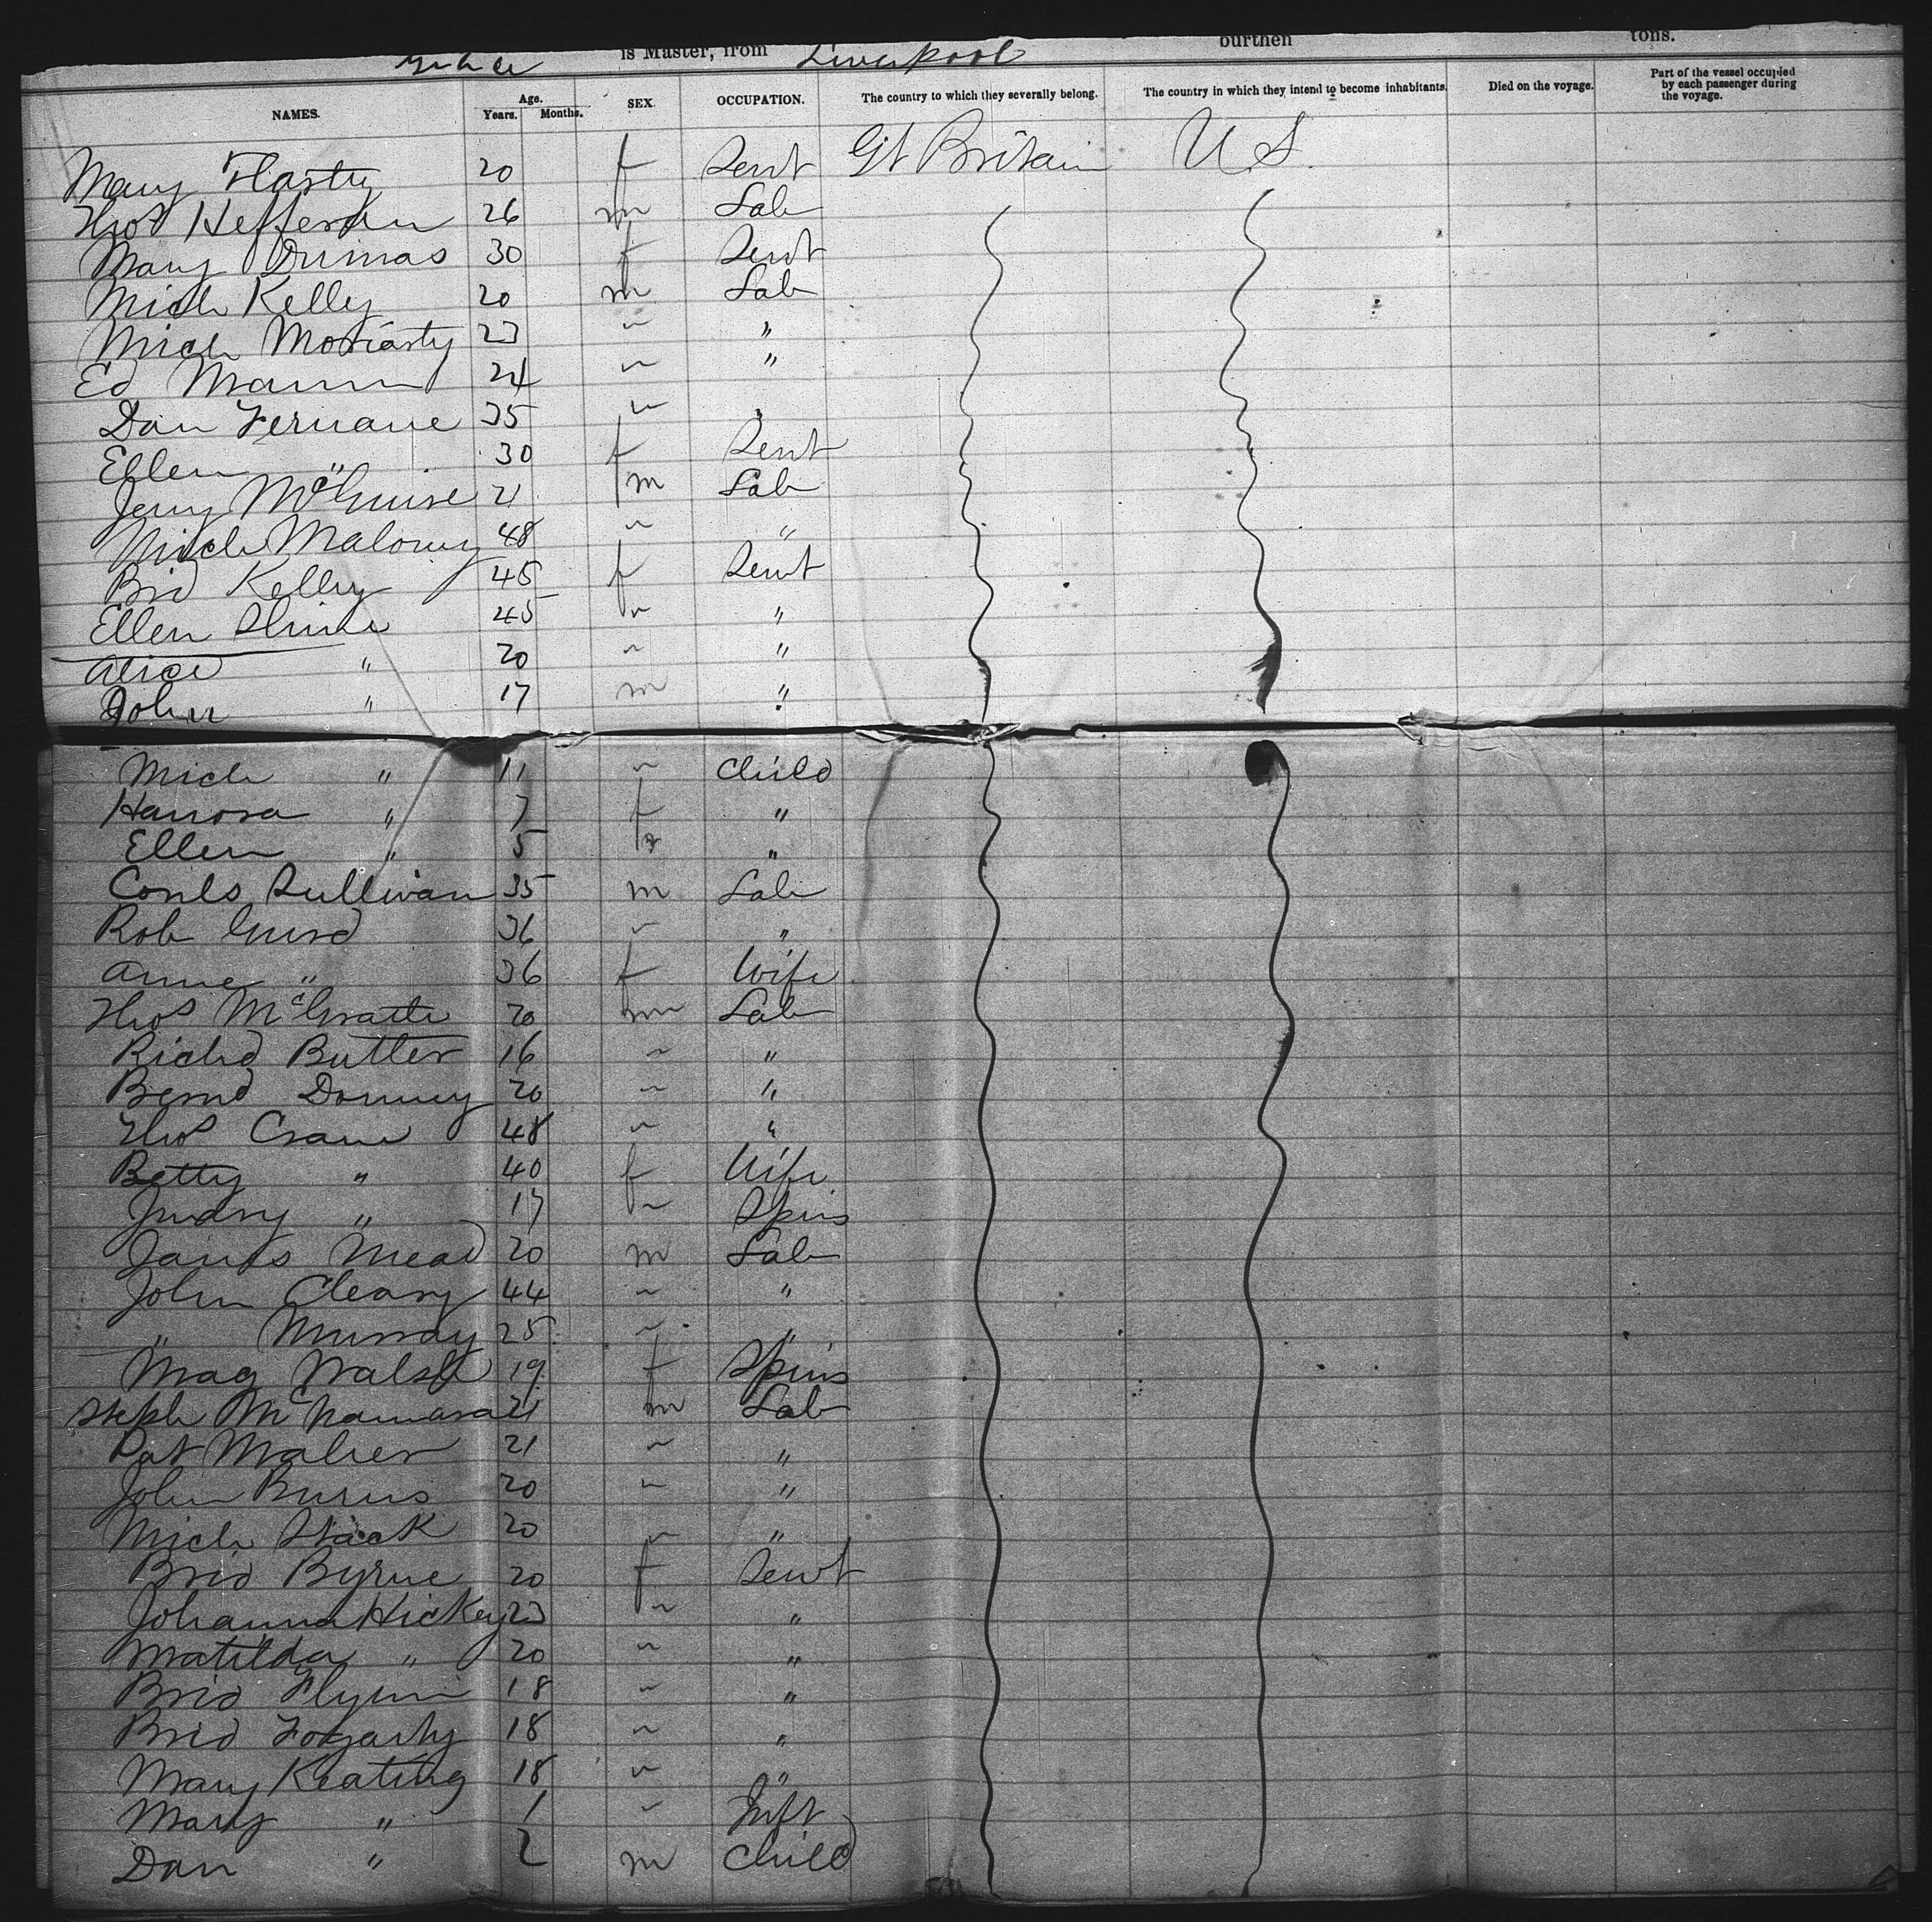 is Master, from Liverpool burthen tons.
NAMES. Age. Years. Months. SEX. OCCUPATION. The country to which they severally belong. The country in which they intend to become inhabitants. Died on the voyage. Part of the vessel occupied by each passenger during the voyage.
Mary Hasty 20 f Servt Gt Britain U S
Thos Heffernan 26 m Lab
Mary Drimas 30 f Servt
Mich Kelly 20 m Lab
Mich Moriarty 23 " "
Ed Mann 24 " "
Dan Fernane 35 " "
Ellen " 30 f Servt
Jerry McGuire 21 m Lab
Mich Malony 48 " "
Brd Kelly 45 f Servt
Ellen Shine 45 " "
Alice " 20 " "
John " 17 m "
Mich " 11 " Child
Hanora " 7 f "
Ellen " 5 f "
Cornls Sullivan 35 m Lab
Rob Gurd 36 " "
Anne " 36 f Wife
Thos McGrath 20 m Lab
Richd Butler 16 " "
Bernd Downey 20 " "
Thos Crane 48 " "
Betty " 40 f Wife
Judy " 17 " Spins
James Mead 20 m Lab
John Cleary 44 " "
" Murray 25 " "
Mag Walsh 19 f Spins
Steph McNamara 21 m Lab
Pat Maher 21 " "
John Burns 20 " "
Mich Stack 20 " "
Brid Byrne 20 f Servt
Johanna Hickey 23 " "
Matilda " 20 " "
Brid Flynn 18 " "
Brid Fogarty 18 " "
Mary Keating 18 " "
Mary " 1 " Inft
Dan " 2 m Child